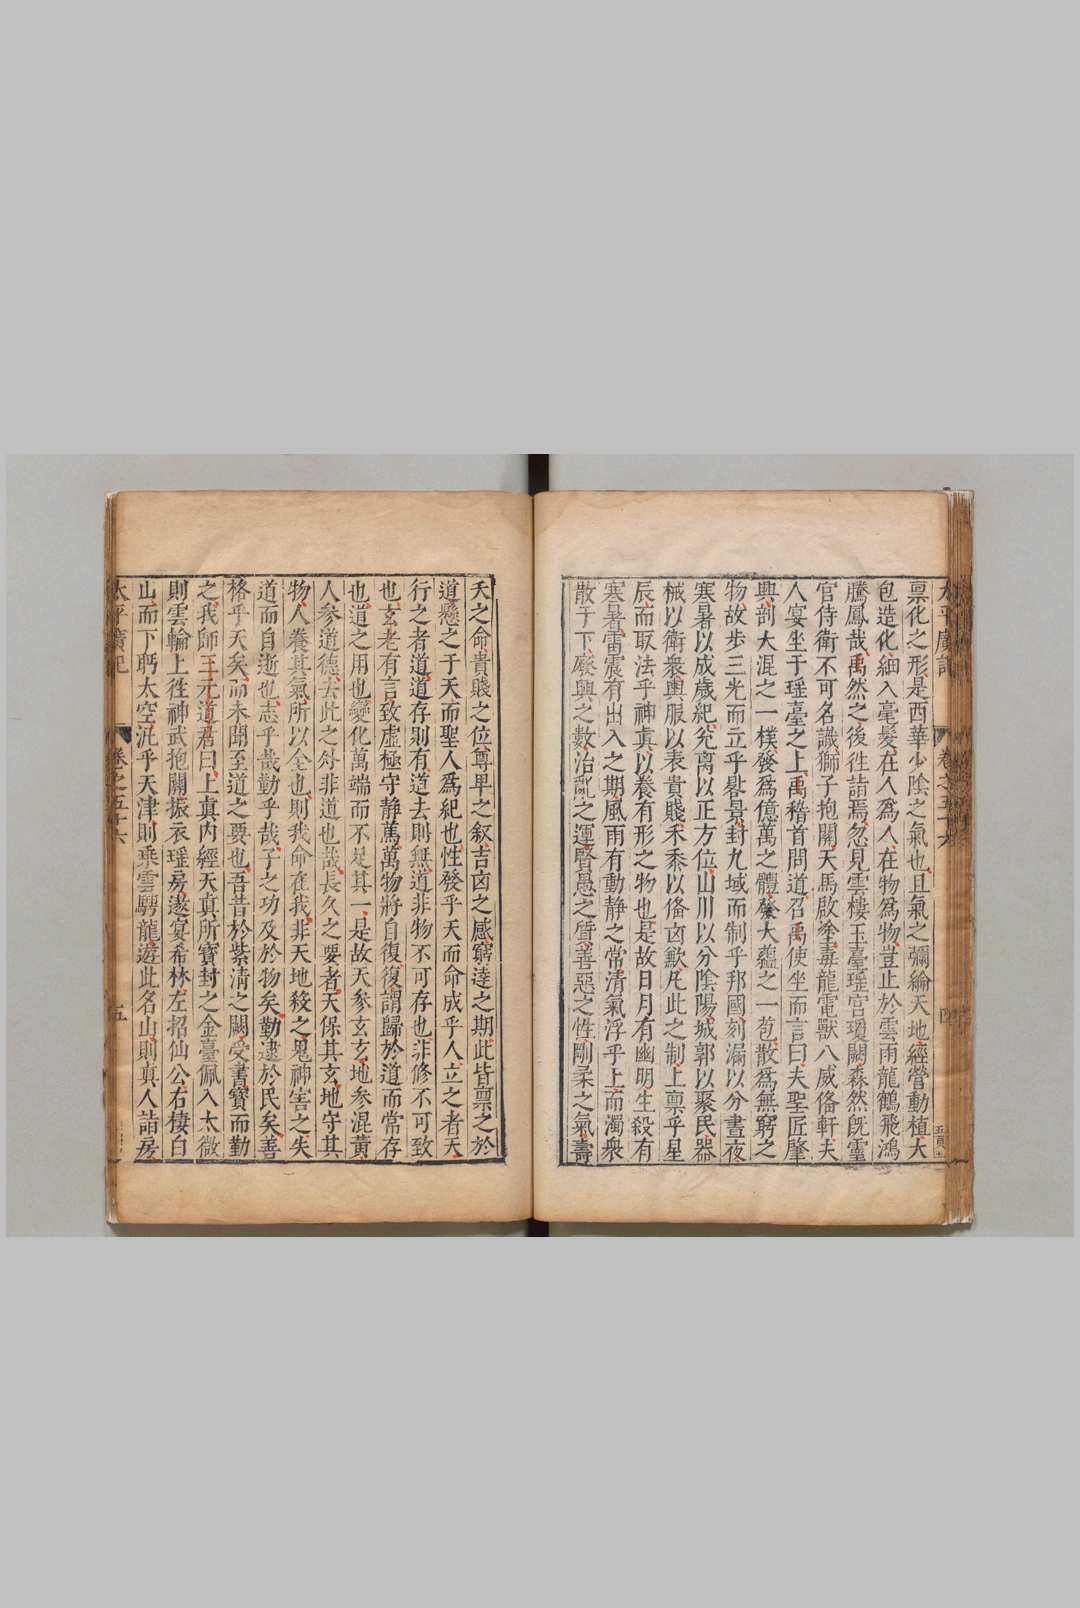 太平廣記 卷之五十六 四
禀化之形是西華少陰之氣也且氣之彌綸天地經營動植大
包造化細入毫髮在人爲人在物爲物豈止於雲雨龍鶴飛鴻
騰鳳哉禹然之後徃詣焉忽見雲樓玉臺瑶宫瓊闕森然既靈
官侍衛不可名識獅子抱關天馬啟塗毒龍電獸八威俻軒夫
人宴坐于瑶臺之上禹稽首問道召禹使坐而言曰夫聖匠肇
興剖大混之一樸發爲億萬之體發大蘊之一苞散爲無窮之
物故步三光而立乎晷景封九域而制乎邦國刻漏以分晝夜
寒暑以成歲紀兊离以正方位山川以分陰陽城郭以聚民器
械以衛衆輿服以表貴賤禾黍以俻凶歉凡此之制上禀乎星
辰而取法乎神真以養有形之物也是故日月有幽明生殺有
寒暑雷震有出入之期風雨有動静之常清氣浮乎上而濁衆
散于下廢興之數治亂之運賢愚之質善惡之性剛柔之氣壽
夭之命貴賤之位尊卑之叙吉凶之感窮達之期此皆禀之於
道懸之于天而聖人爲紀也性發乎天而命成乎人立之者天
行之者道道存則有道去則無道非物不可存也非修不可致
也玄老有言致虚極守静篤萬物將自復復謂歸於道而常存
也道之用也變化萬端而不足其一是故天参玄玄地参混黄
人参道德去此之外非道也哉長久之要者天保其玄地守其
物人養其氣所以全也則我命在我非天地殺之鬼神害之失
道而自逝也志乎哉勤乎哉子之功及於物矣勤逮於民矣善
格乎天矣而未聞至道之要也吾昔於紫清之闕受書寶而勤
之我師三元道君曰上真内經天真所寳封之金臺佩入太微
則雲輪上徃神武抱關振衣瑶房遨宴希林左招仙公右棲白
山而下眄太空汎乎天津則乗雲騁龍遊此名山則真人詣房
太平廣記 卷之五十六 五